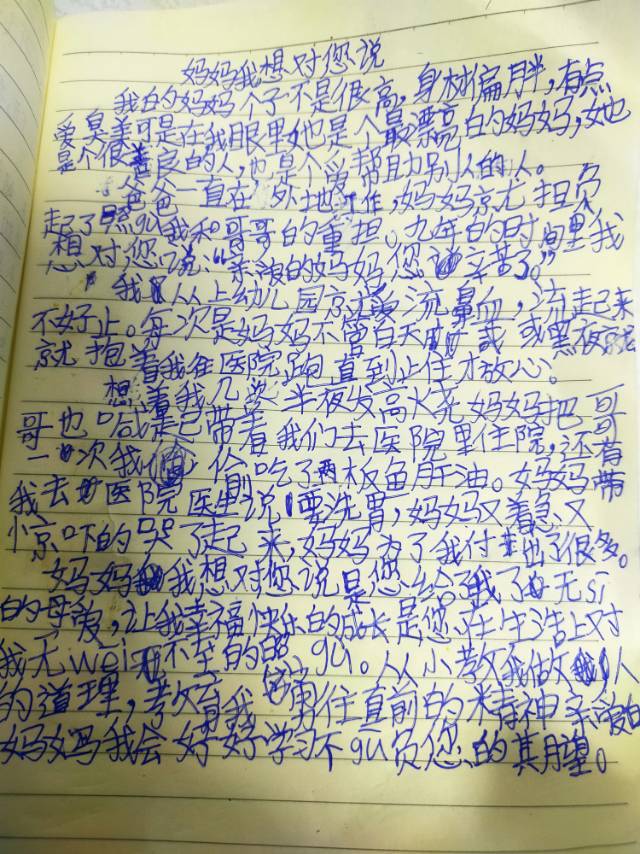 妈妈我想对您说
我的妈妈个子不是很高,身材偏胖,有点
爱臭美可是在我眼里她也是个最漂亮的妈妈,她也
是个很善良的人,也是个爱帮助别人的人。
爸爸一直在外地工作,妈妈就担负
起了照gu我和哥哥的重担。九年的时间里我
想对您说:“亲爱的妈妈您辛苦了。”
我从上幼儿园就流鼻血,流起来
不好止。每次是妈妈不管白天或黑夜
就抱着我往医院跑直到止住才放心。
想着我几岁半夜发高火尧妈妈把哥
哥也喊起带着我们去医院里住院,还有
一次我偷吃了两板鱼肝油。妈妈带
我去医院医生说要洗胃,妈妈又着急又
惊吓的哭了起来,妈妈为了我付出了很多。
妈妈我想对您说是您给了我了无si
的母爱,让我幸福快乐的成长是您在生活上对
我无wei不至的gu。从小教我做人
的道理,教育我勇往直前的精神亲爱的
妈妈我会好好学习不gu负您的其月望。